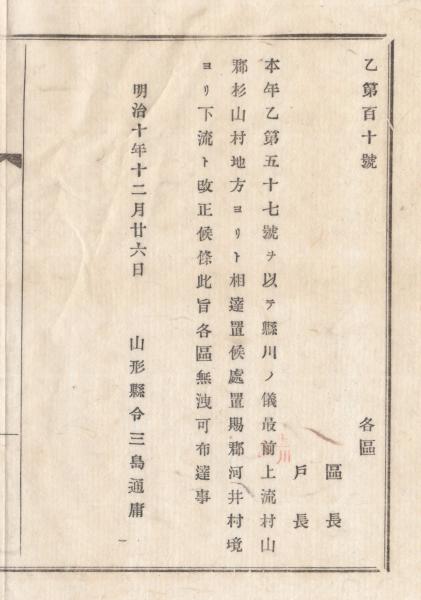 乙第百十號
各區
區長
戶長
本年乙第五十七號ヲ以テ縣川ノ儀最前上流村山
郡杉山村地方ヨリト相達置候處置賜郡河井村境
ヨリ下流ト改正候條此旨各區無洩可布達事
明治十年十二月廿六日
山形縣令三島通庸